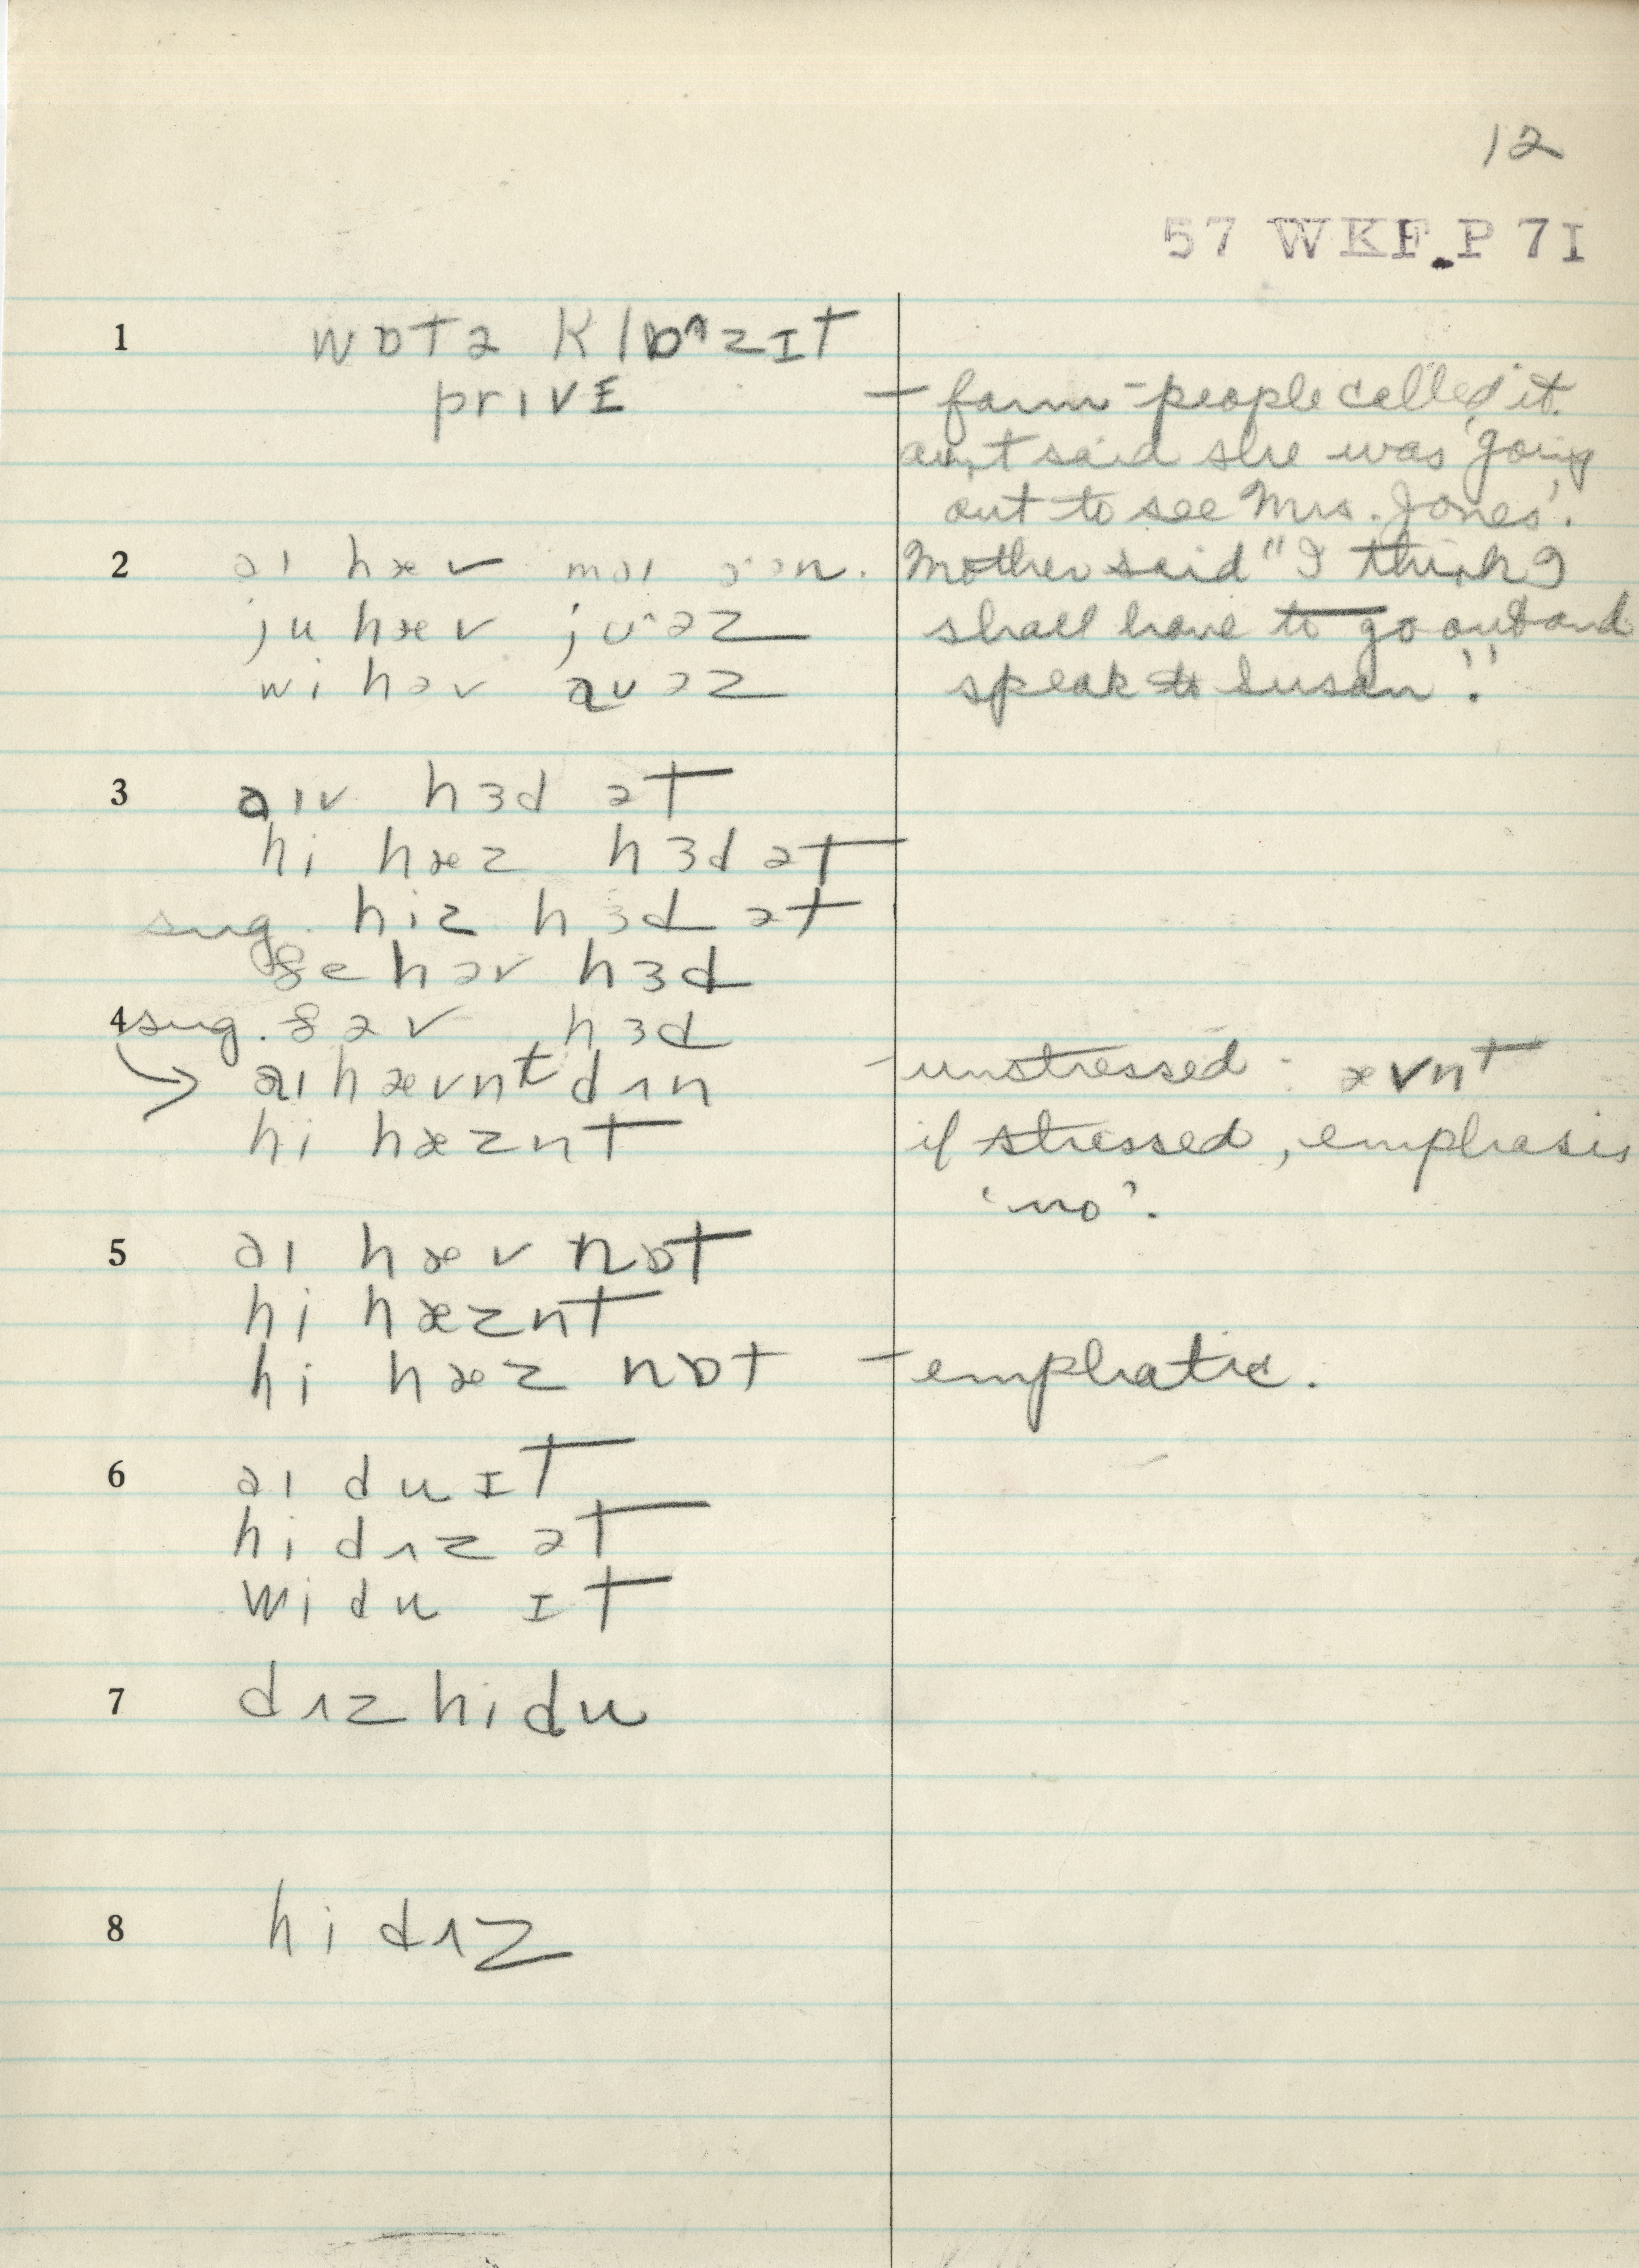 12
57 WKF.P 7I
1 wɒtə klɒ^zɪt
privɛ - farm-people called it.
aunt said she was 'going
out to see Mrs. Jones'.
2 aɪ hæv maɪ Mother said "I think I
ju hæv jʊ^əz shall have to go out and
wi həv aʊəz speak to Susan".
3 aɪv hɜd ət
hi hæz hɜd ət
sug. hiz hɜd ət
ðe həv hɜd
4 sug. ðəv hɜd
→ aɪ hævnt dʌn - unstressed - ævnt
hi hæznt if stressed, emphasis
'no'.
5 aɪ hæv nɒt
hi hæznt
hi hæz nɒt - emphatic.
6 aɪ du ɪt
hi dʌz ət
wi du ɪt
7 dʌz hi du
8 hi dʌz